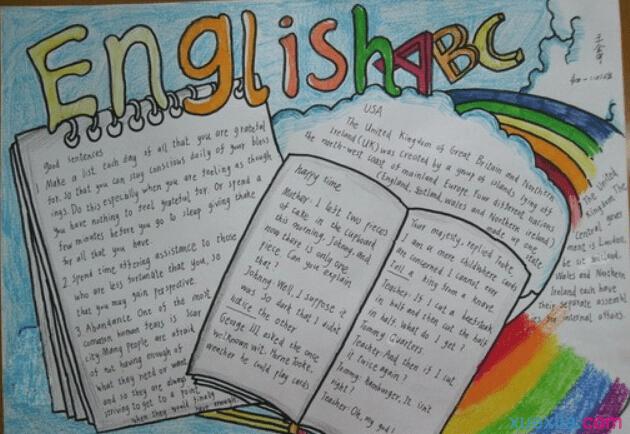 English ABC
good sentences
1 Make a list each day of all that you are grateful
for. So that you can stay conscious daily of your bless
ings. Do this especially when you are feeling as though
you have nothing to feel grateful for. Or spend a
few minutes before you go to sleep giving thanks
for all that you have.
2 Spend time offering assistance to those
who are less fortunate that you, so
that you may gain perspective.
3 Abundance One of the most
common human fears is scar
city Many people are afraid
of not having enough of
what they need or want
and so they are always
striving to get to a point
when they would finally
have enough
happy time
Mother: I left two pieces
of cake in the cupboard
this morning, Johnny, And
now there is only one
piece. Can you explain
that?
Johnny: Well, I suppose it
was so dark that I didn't
notice the other
George III, asked the once
well known wit,
weather he could play cards
Your majesty, replied Tooke,
I am a mere child where cards
are concerned I cannot even
tell a king from a knave
Teacher: If I cut a beefsteak
in half and then cut the half
in half, what do I get?
Tommy: Quarters.
Teacher: And then if I cut
it twice again?
Tommy: Hamburger, It isn't
right?
Teacher: Oh, my god!
USA
The United Kingdom of Great Britain and Northern
Ireland (UK) was created by a group of islands lying off
the north-west coast of mainland Europe. Four different nations
(England, Scotland, wales and Northern ireland)
made up one
state
The United
Kingdom The
Central gover
ment is London,
Wales and Northern
Ireland each have
their separate assembl
internal affairs.